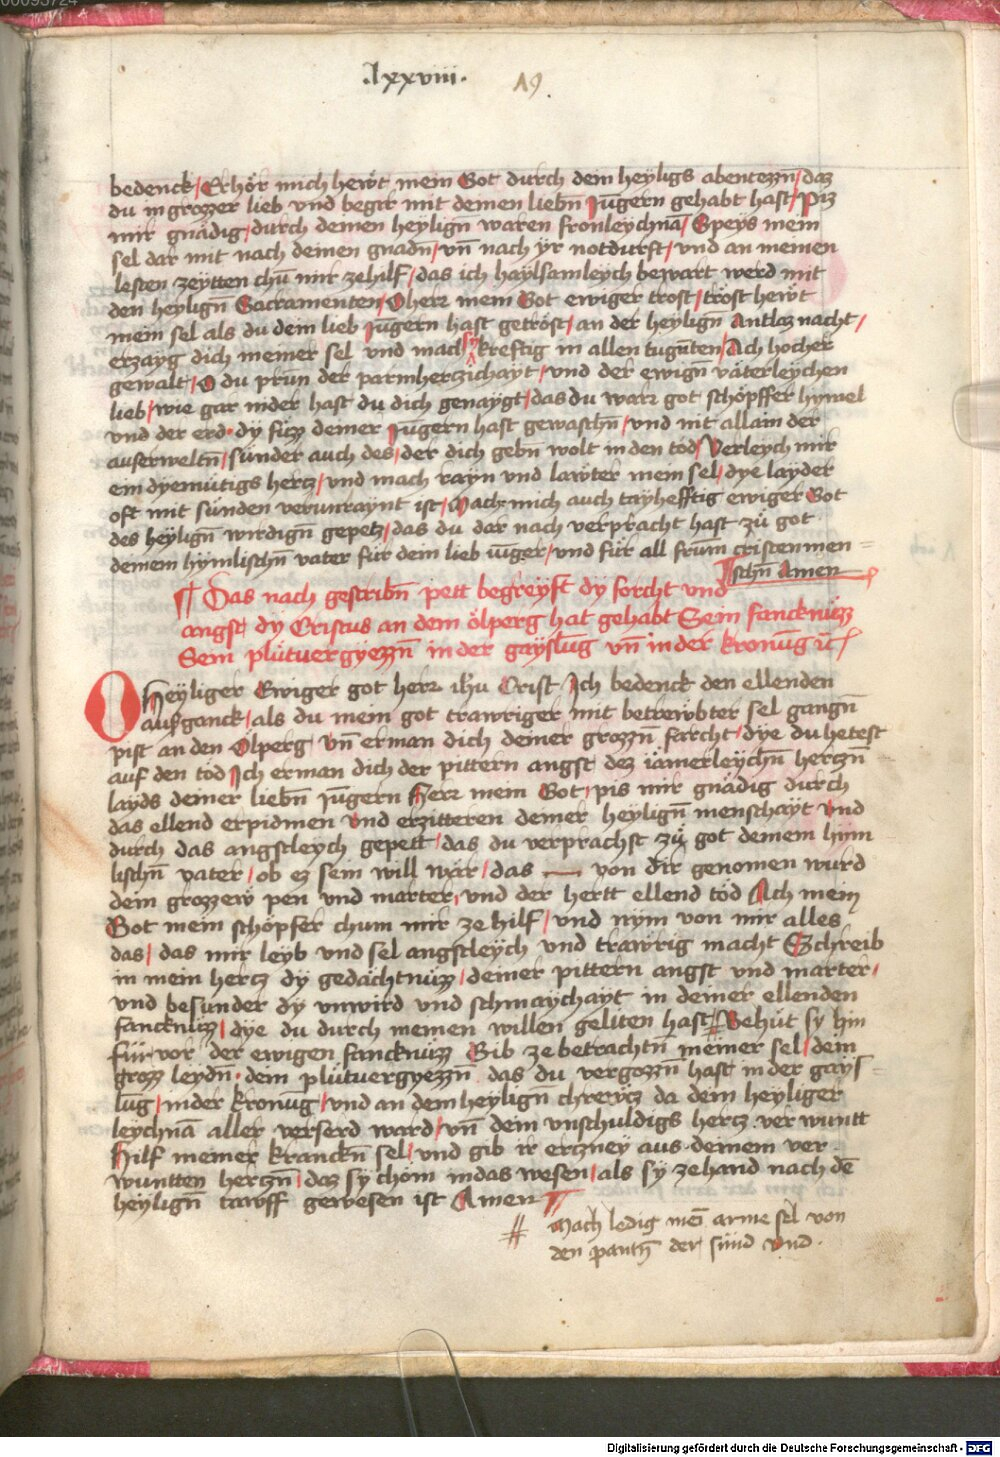 .lxxviii. 19.
bedenck / Erhör mich hewt mein Got durch dein heyligs abentezzn / daz
du in grozzer lieb vnd begir mit deinen liebn̄ Jūgern gehabt hast / Piz
mir gnädig / durch deinen heylign̄ waren fronleychnā / Speys mein
sel dar mit nach deinen gnadn̄ / vn̄ nach yr notdurft / vnd an meinen
lesten zeytten chū mir zehilf / das ich haylsamleych bewart werd mit
den heylign̄ Sacramenten / O herr mein Got ewiger trost / tröst hewt
mein sel als du dein lieb Jūgern hast getröst / an der heylign̄ Antlaz nacht /
erzayg dich meiner sel vnd mach sy kreftig in allen tugūten / Ach hocher
gewalt / O du prun̄ der parmherczichayt / vnd der ewign̄ väterleychen
lieb / wie gar nider hast du dich genaygt / das du warr got schöpffer hymel
vnd der erd · dy füzz deiner Jūgern hast gewaschn̄ / vnd nit allain der
auserweltn̄ / sünder auch des / der dich gebn̄ wolt in den tod / Verleych mir
ein dyemütigs hercz / vnd mach rayn vnd lawter mein sel / dye layder
oft mit sünden verunraynt ist / Mach mich auch tayhefftig ewiger Got
des heylign̄ wirdign̄ gepetz / das du dar nach verpracht hast zü got
deinem hymlischn̄ vater für dein lieb iūger / vnd für all frūm cristenmen=
schn̄ Amen
Das nach gescribn̄ pett begreyft dy forcht vnd
angst dy Cristus an dem ölperg hat gehabt Sein fancknüzz
Sein plütvergyezzn̄ in der gayslūg vn̄ in der kronūg ꝛc̄
O Heyliger Ewiger got herr ihū Crist Ich bedenck den ellenden
aufganck / als du mein got trawriger mit betrewbter sel gangn̄
pist an den Ölperg vn̄ erman dich deiner grozzn̄ farcht / dye du hetest
auf den töd Ich erman dich der pittern angst dez iämerleychn̄ herczn̄
layds deiner liebn̄ iūgern Herr mein Got / pis mir gnädig durch
das ellend erpidmen vnd erzitteren deiner heylign̄ menschayt vnd
durch das angstleych gepett / das du verprachst zü got deinem hym
lischn̄ vater / ob ez sein will wär / das — von dir genomen wurd
dein grozzew pen vnd marter / vnd der hertt ellend töd Ach mein
Got mein schöpfer chum mir ze hilf / vnd nym von mir alles
das / das mir leyb vnd sel angstleych vnd trawrig macht Schreib
in mein hercz dy gedächtnüzz / deiner pittern angst vnd marter /
vnd besunder dy vnwird vnd schmaychayt in deiner ellenden
fancknüzz / dye du durch meinen willen geliten hast # Behüt sy hin
für vor der ewigen fancknüzz Gib ze betrachtn̄ meiner sel / dein
grozz leydn̄ · dein plütvergyezzn̄ das du vergozzn̄ hast in der gays=
lūg / in der kronūg / vnd an dem heylign̄ chrewcz da dein heyliger
leychnā aller verserd ward / vn̄ dein vnschuldigs hercz verwuntt
Hilf meiner kranckn̄ sel / vnd gib ir erczney aus deinem ver
wuntten herczn̄ / daz sy chöm in das wesen / als sy zehand nach dē
heylign̄ tawff gewesen ist Amen
# Mach ledig meī arme sel von
den pantn̄ der sünd vnd ·
Digitalisierung gefördert durch die Deutsche Forschungsgemeinschaft - DFG